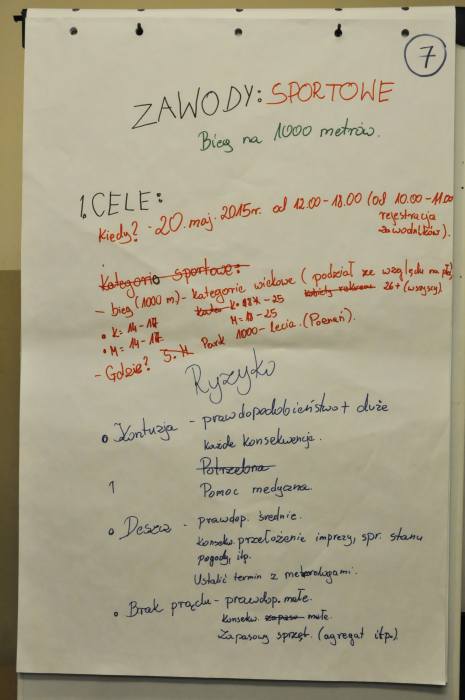 7
ZAWODY: SPORTOWE
Bieg na 1000 metrów.
1. CELE:
Kiedy? - 20. maj. 2015r. od 12.00 - 18.00 (od 10.00 - 11.00
rejestracja
zawodników).
Kategorie sportowe:
- bieg (1000 m.) - kategorie wiekowe (podział ze względu na płeć)
• K = 14 - 17 K = 18 - 25 26+ (wszyscy)
• M = 14 - 17 M = 18 - 25
- Gdzie? Park 1000 - lecia. (Poznań).
Ryzyko
• Kontuzja - prawdopodobieństwo + duże
każde konsekwencja.
Potrzebna
1 Pomoc medyczna.
• Deszcz - prawdop. średnie.
Konsekw. przełożenie imprezy, spr. stanu
pogody, itp.
Ustalić termin z meteorologami.
• Brak prądu - prawdop. małe.
Konsekw. zapaso małe.
Zapasowy sprzęt. (agregat itp.)